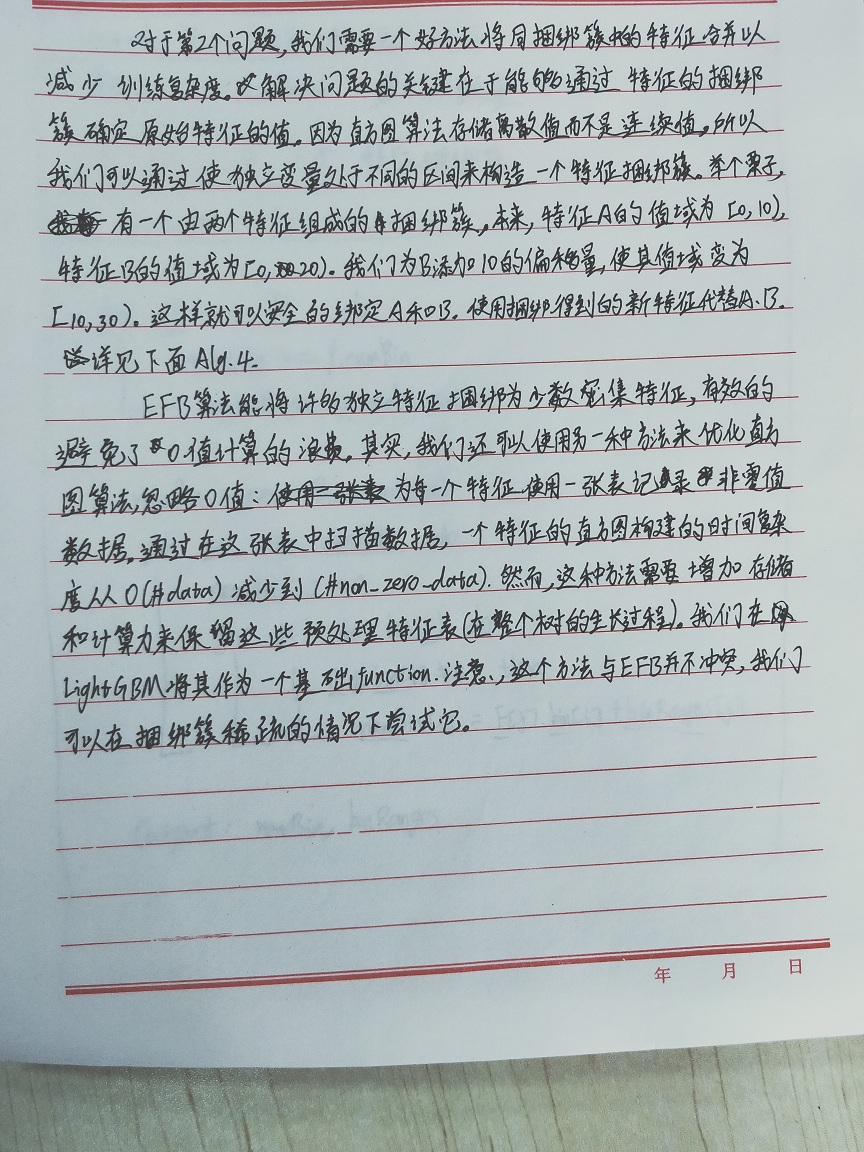 对于第2个问题,我们需要一个好方法将同捆绑簇中的特征合并以
减少训练复杂度。解决问题的关键在于能够通过特征的捆绑
簇确定原始特征的值。因为直方图算法存储离散值而不是连续值。所以
我们可以通过使独立变量处于不同的区间来构造一个特征捆绑簇。举个栗子,
有一个由两个特征组成的捆绑簇。本来,特征A的值域为[0,10),
特征B的值域为[0,20)。我们为B添加10的偏移量,使其值域变为
[10,30)。这样就可以安全的绑定A和B.使用捆绑得到的新特征代替A.B.
详见下面Alg.4.
EFB算法能将许多独立特征捆绑为少数密集特征,有效的
避免了0值计算的浪费。其实,我们还可以使用另一种方法来优化直方
图算法,忽略0值:为每一个特征使用一张表记录非零值
数据。通过在这张表中扫描数据,一个特征的直方图构建的时间复杂
度从O(#data)减少到(#non_zero_data).然而,这种方法需要增加存储
和计算力来保留这些预处理特征表(在整个树的生长过程)。我们在
LightGBM将其作为一个基础function.注意,这个方法与EFB并不冲突,我们
可以在捆绑簇稀疏的情况下尝试它。
年 月 日